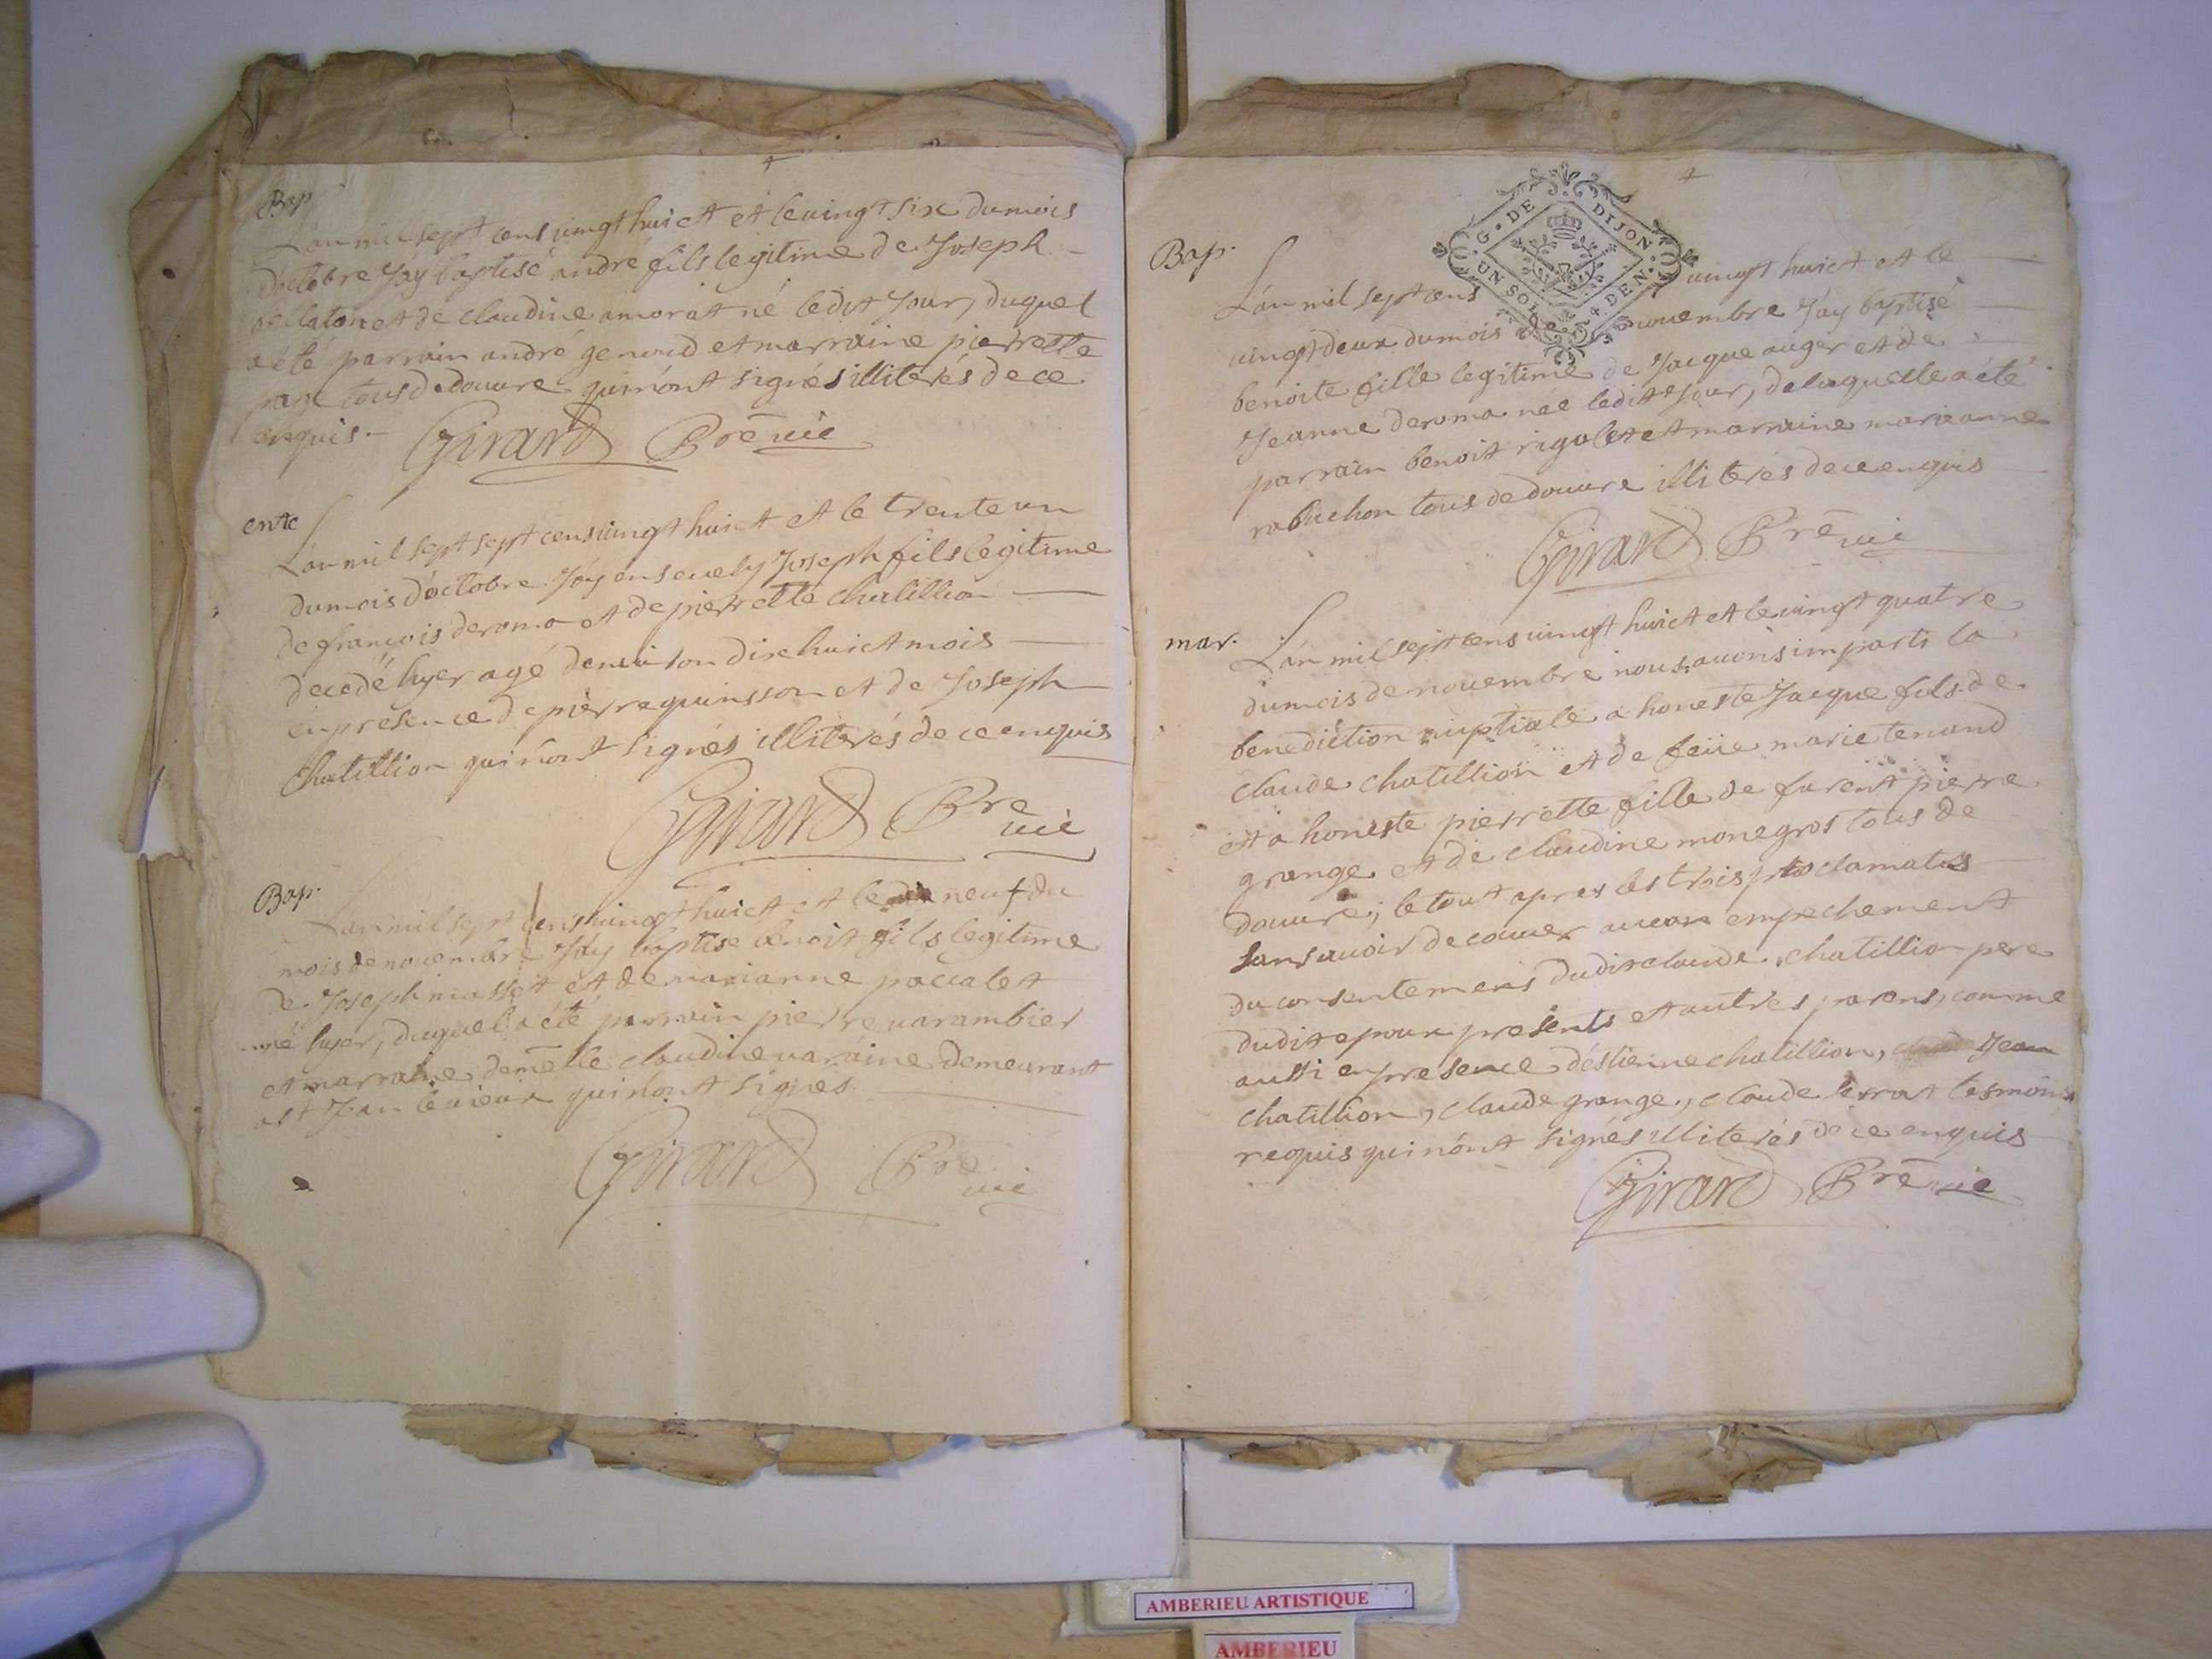 Bap
L'an mil sept cens vingt huict et le vingt six du mois
d'octobre J'ay baptisé andré fils legitime de Joseph
pellaton et de claudine amorat né ledit Jour, duquel
a été parrain andré genoud et marraine pierrette
tous de douvre qui n'ont signés illiterés de ce
enquis
Girard Bre vic
ente
L'an mil sept sept cens vingt huict et le trente un
du mois d'octobre J'ay ensevely Joseph fils legitime
de françois deroma et de pierrette chatillion
decedé hyer agé denviron dix huict mois
en presence de pierre quinsson et de Joseph
Chatillion qui n'ont signés illiterés de ce enquis
Girard Bre vic
Bap.
L'an mil sept cens vingt huict et le neuf du
mois de novembre J'ay baptise benoit fils legitime
de Joseph massit et de marianne paccalet
né hyer, duquel a été parrain pierre varambier
et marraine demelle claudine varaine demeurant
a st Jean le vieux qui n'ont signés
Girard Bre vic
G. DE DIJON
UN SOL 4 DEN.
Bap.
L'an mil sept cens vingt huict et le
vingt deux du mois de novembre J'ay baptisé
benoite fille legitime de Jacque auger et de
Jeanne deroma née ledit Jour, de laquelle a été
parrain benoit rigolet et marraine marianne
rabuchon tous de douvre illiterés de ce enquis
Girard Bre vic
mar.
L'an mil sept cens vingt huict et le vingt quatre
du mois de novembre nous avons imparti la
benediction nuptiale a honeste Jacque fils de
claude chatillion et de feüe marie tenand
et a honeste pierrette fille de furent pierre
grange et de claudine monegros tous de
douvre; le tout apres les trois proclamatns
sans avoir decouver aucun empechement
du consentement dudit claude chatillion pere
dudit epoux presents et autres parens, comme
aussi en presence d'estienne chatillion, Jean
chatillion, claude grange, claude ferrat tesmoins
requis qui n'ont signés illiterés de ce enquis
Girard Bre vic
AMBERIEU ARTISTIQUE
AMBERIEU